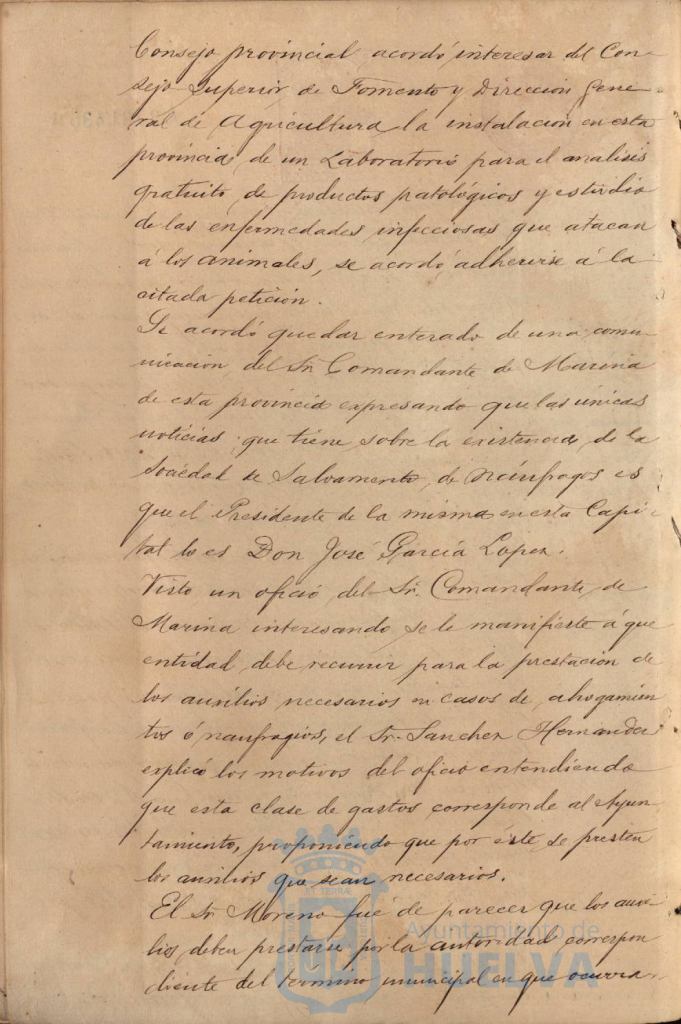 Consejo provincial acordó interesar del Con-
sejo Superior de Fomento y Direccion Gene-
ral de Agricultura la instalacion en esta
provincia de un Laboratorio para el analisis
gratuito de productos patológicos y estudio
de las enfermedades infecciosas que atacan
á los animales, se acordó adherirse á la
citada petición.
Se acordó quedar enterado de una comu-
nicacion del Sr. Comandante de Marina
de esta provincia expresando que las únicas
noticias que tiene sobre la existencia de la
Sociedad de Salvamento de Náufragos es
que el Presidente de la misma en esta Capi-
tal lo es Don José García Lopez.
Visto un oficio del Sr. Comandante de
Marina interesando se le manifieste á que
entidad debe recurrir para la prestacion de
los auxilios necesarios en casos de ahogamien-
tos ó naufragios, el Sr. Sanchez Hernandez
explicó los motivos del oficio entendiendo
que esta clase de gastos corresponde al Ayun-
tamiento, proponiendo que por este se presten
los auxilios que sean necesarios.
El Sr. Moreno fué de parecer que los auxi-
lios deben prestarse por la autoridad correspon-
diente del termino municipal en que ocurra
Ayuntamiento de
HUELVA